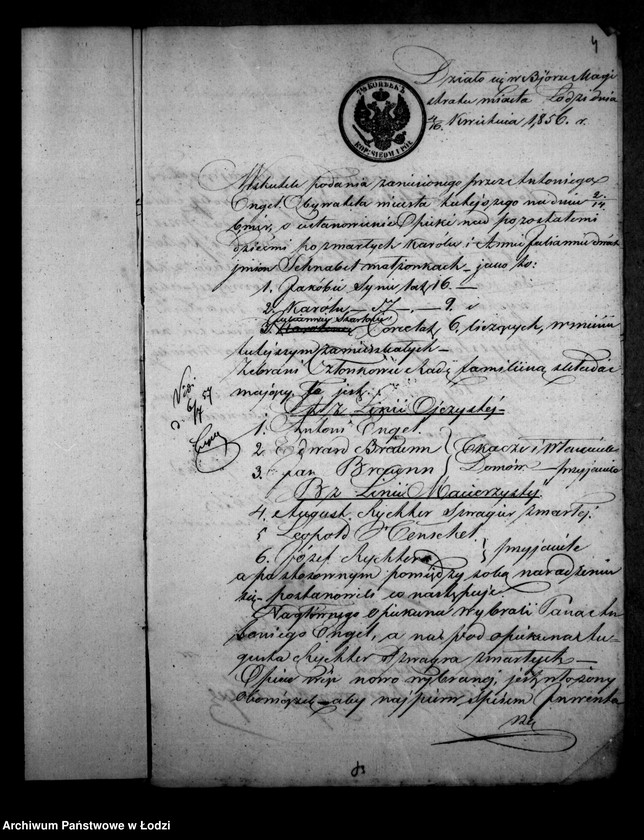 4
7½ КОПѢЕКЪ
Działo się w Biórze Magi
stratu miasta Łodzi dnia
4/16 Kwietnia 1856. r.
Wskutek podania zaniesionego przez Antoniego
Engel Obywatela miasta tutejszego na dniu 2/14
b. mie, o ustanowienie Opieki nad pozostałemi
dziećmi po zmarłych Karolu i Annie Juliannie dwoch
imion Schnabel małżonkach – jako to:
1. Jakóbie Synu lat 16. –
2. Karolu – 9. i
3. Córce lat 6. liczących, w mieście
tutejszym zamieszkałych –
Zebrani Członkowie Radę familiiną składać
mający, to jest:
z Linii Ojczystej –
1. Antoni Engel.
2. Edward Braunn
3. Jan Braunn
Tkacze i Właściciele
Domów – przyjaciele
B. z Linii Macierzystej.
4. August Rychter Szwagier zmarłej.
5 Leopold Henschel.
6. Józef Rychter
przyjaciele
a po stosownym pomiędzy sobą naradzeniu
się – postanowili co następuje.
Na głównego opiekuna wybrali Pana An
toniego Engel, a na pod opiekuna Au
gusta Rychter Szwagra zmarłych –
Opiece więc nowo wybranej, jest włożony
obowiązek – aby najpierw, spisem Inwenta
rza
Archiwum Państwowe w Łodzi